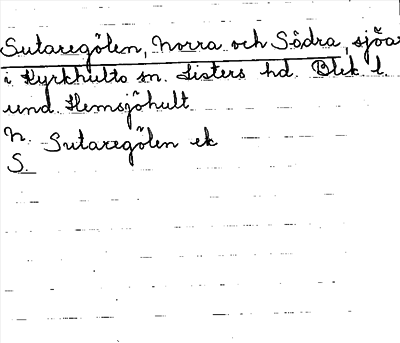 Sutaregölen, Norra och Södra, sjöar
i Kyrkhults sn. Listers hd. Blek l.
und. Hemsjöhult
N. Sutaregölen ek
S.